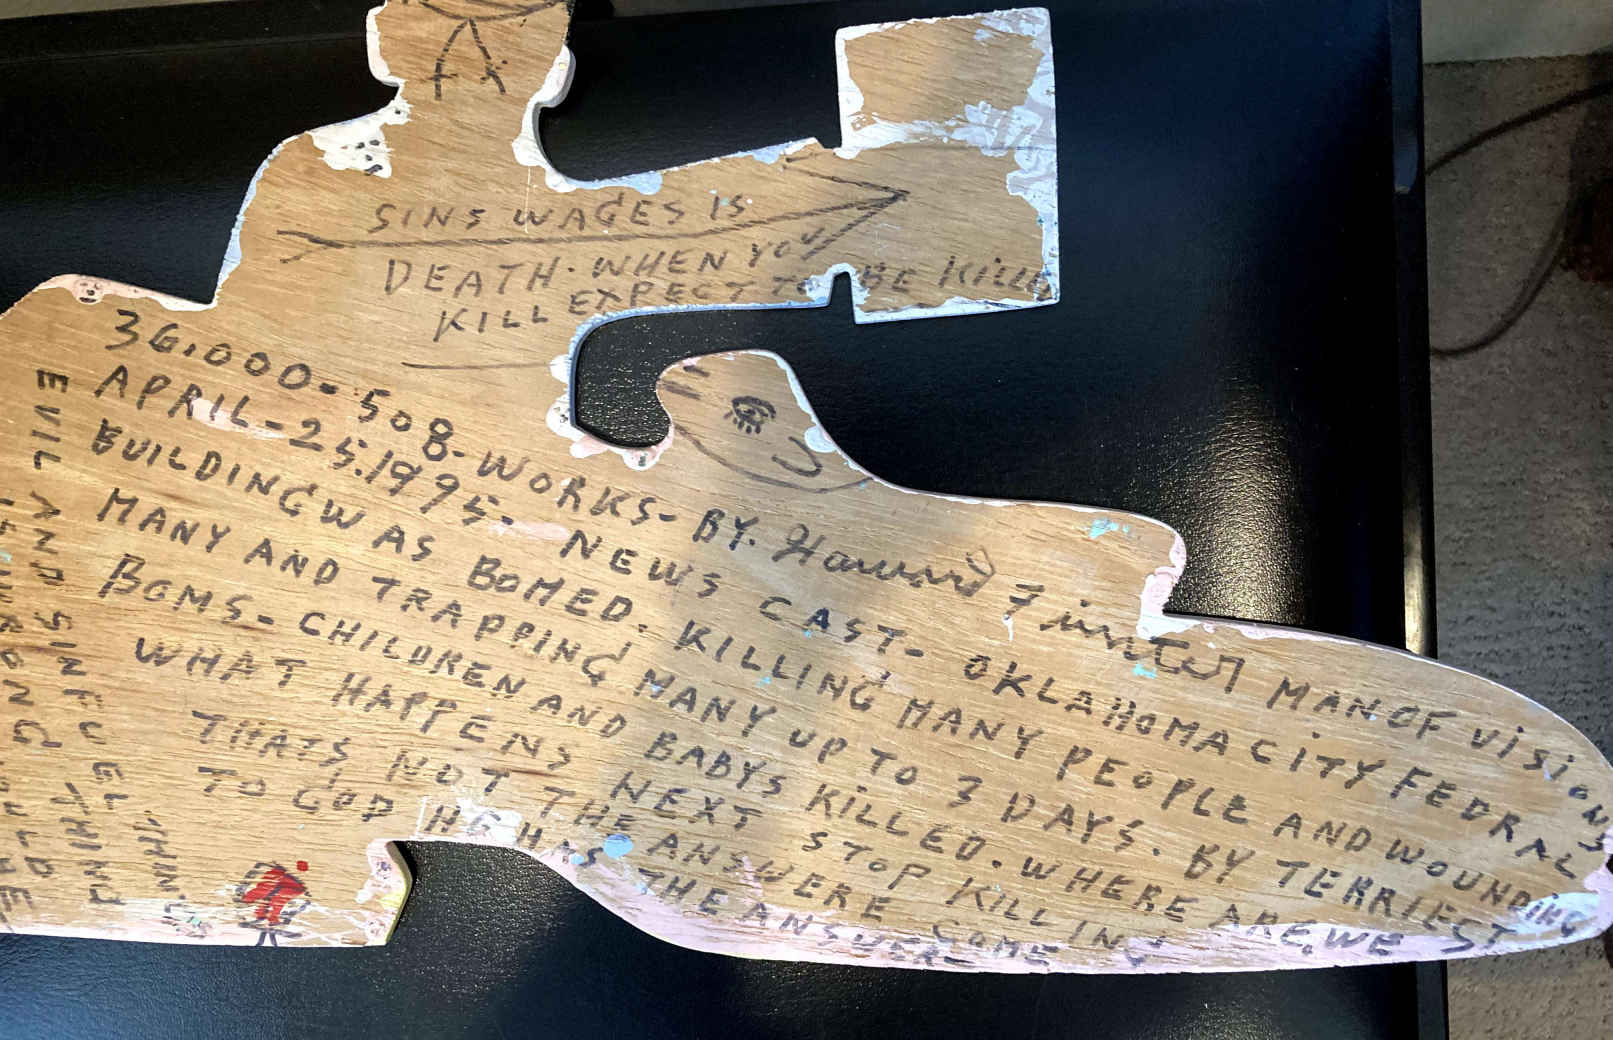 SINS WAGES IS
DEATH. WHEN YOU
KILL EXPECT TO BE KILLED
36.000-508-WORKS-BY. Howard Finster MAN OF VISIONS
APRIL-25.1995- NEWS CAST- OKLAHOMA CITY FEDRAL
BUILDING WAS BOMED. KILLING MANY PEOPLE AND WOUNDING
MANY AND TRAPPING MANY UP TO 3 DAYS. BY TERRIEST
BOMS- CHILDREN AND BABYS KILLED. WHERE ARE WE
WHAT HAPPENS NEXT STOP KILLING
THATS NOT THE ANSWERE COME
TO GOD HE HAS THE ANSWER-
EVIL AND SINFUEL